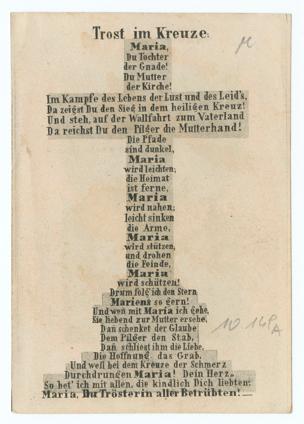 Trost im Kreuze.
Maria,
Du Tochter
der Gnade!
Du Mutter
der Kirche!
Im Kampfe des Lebens der Lust und des Leid's,
Da zeigst Du den Sieg in dem heiligen Kreuz!
Und steh, auf der Wallfahrt zum Vaterland
Da reichst Du den Pilger die Mutterhand!
Die Pfade
sind dunkel,
Maria
wird leichten;
die Heimat
ist ferne,
Maria
wird nahen;
leicht sinken
die Arme,
Maria
wird stützen,
und drohen
die Feinde,
Maria
wird schützen!
Drum folg' ich den Stern
Mariens so gern!
Und weñ mit Maria ich gehe,
Sie liebend zur Mutter ersehe,
Dañ schenket der Glaube
Dem Pilger den Stab,
Dañ schliest ihm die Liebe,
Die Hoffnung, das Grab,
Und weil bei dem Kreuze der Schmerz
Durchdrungen Maria! Dein Herz,
So bet' ich mit allen, die kindlich Dich liebten:
Maria, Du Trösterin aller Betrübten!